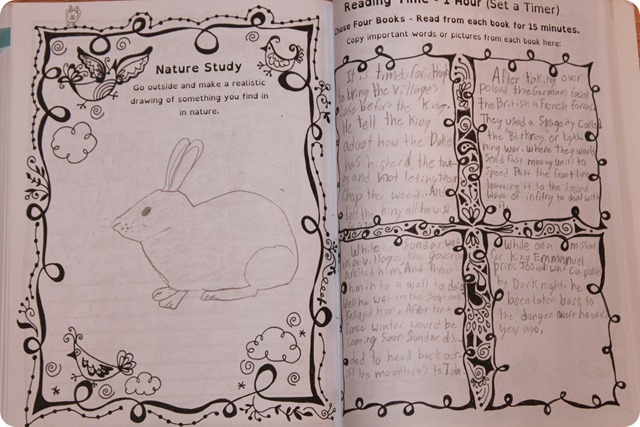 Nature Study
Go outside and make a realistic
drawing of something you find in
in nature.
Reading Time - 1 Hour (Set a Timer)
Chose Four Books - Read from each book for 15 minutes.
Copy important words or pictures from each book here:
It is time for Hugh
to bring the Villages
before the King.
He tell the King
about how the Duke
has higherd the tax
es and not leting them
Chop the wood. And
tell the King all he will
After taking over
poland the Germans faced
the British & French forces
They used a Called
the "Blitkreg" or light
ning war. where they would
send fast moving units to
Speed Past the front line
leaveing it to the second
wave of infitry to deal with
it.
While Sundar was
in a village the govern
arested him. And threw
him in to a well to die
Well he was in the
him. After that
Since winter would be
coming soon Sundar di
ded to head back
the mountains to
While on a mission
for King Emmanuel
princ was capture
by Dark nights. he
been taken back to
the dangeon
year ago.